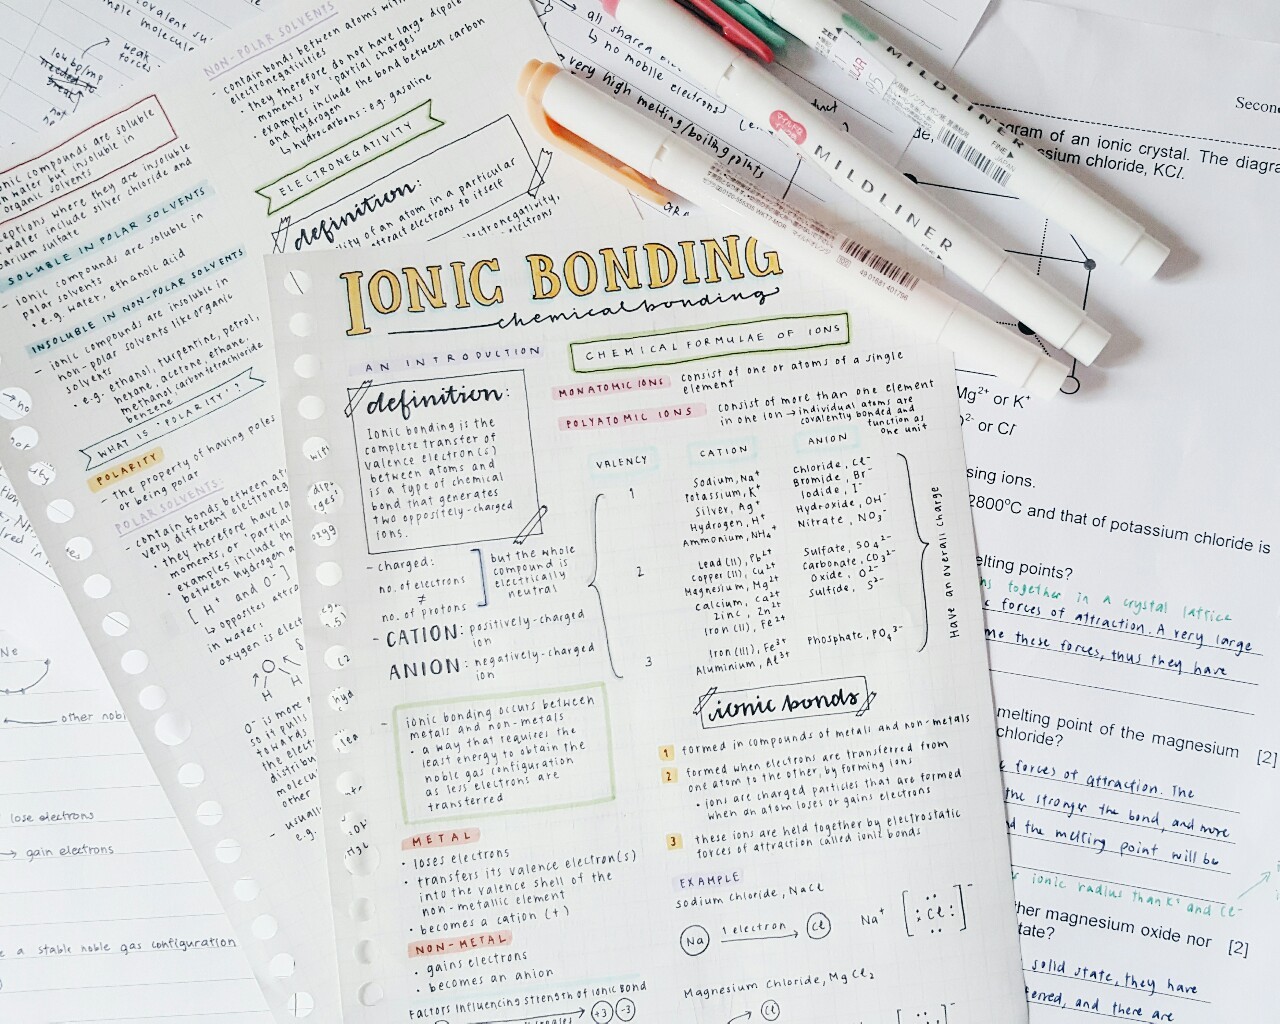 IONIC BONDING
chemical bonding
AN INTRODUCTION
definition:
Ionic bonding is the
complete transfer of
valence electron(s)
between atoms and
is a type of chemical
bond that generates
two oppositely-charged
ions.
- charged:
no. of electrons
≠
no. of protons
but the whole
compound is
electrically
neutral
- CATION: positively-charged
ion
ANION: negatively-charged
ion
- ionic bonding occurs between
metals and non-metals
• a way that requires the
least energy to obtain the
noble gas configuration
as less electrons are
transferred
METAL
• loses electrons
• transfers its valence electron(s)
into the valence shell of the
non-metallic element
• becomes a cation (+)
NON-METAL
• gains electrons
• becomes an anion
Factors Influencing strength of Ionic Bond
+3 -3
CHEMICAL FORMULAE OF IONS
MONATOMIC IONS consist of one or atoms of a single
element
POLYATOMIC IONS consist of more than one element
in one ion → individual atoms are
covalently bonded and
function as
one unit
VALENCY CATION ANION
1
Sodium, Na⁺
Potassium, K⁺
Silver, Ag⁺
Hydrogen, H⁺
Ammonium, NH₄⁺
Chloride, Cl⁻
Bromide, Br⁻
Iodide, I⁻
Hydroxide, OH⁻
Nitrate, NO₃⁻
2
Lead (II), Pb²⁺
Copper (II), Cu²⁺
Magnesium, Mg²⁺
Calcium, Ca²⁺
Zinc, Zn²⁺
Iron (II), Fe²⁺
Sulfate, SO₄²⁻
Carbonate, CO₃²⁻
Oxide, O²⁻
Sulfide, S²⁻
3
Iron (III), Fe³⁺
Aluminium, Al³⁺
Phosphate, PO₄³⁻
Have an overall charge
ionic bonds
1 formed in compounds of metals and non-metals
2 formed when electrons are transferred from
one atom to the other, by forming ions
• ions are charged particles that are formed
when an atom loses or gains electrons
3 these ions are held together by electrostatic
forces of attraction called ionic bonds
EXAMPLE
sodium chloride, NaCl
Na 1 electron → Cl Na⁺ [Cl]⁻
Magnesium chloride, MgCl₂
Cl
NON-POLAR SOLVENTS
- contain bonds between atoms with
electronegativities
• they therefore do not have large dipole
moments or partial charges
• examples include the bond between carbon
and hydrogen
↳ hydrocarbons: e.g. gasoline
ELECTRONEGATIVITY
definition:
of an atom in a particular
attract electrons to itself
electronegativity,
electrons
ionic compounds are soluble
in water but insoluble in
organic solvents
where they are insoluble
water include silver chloride and
barium sulfate
SOLUBLE IN POLAR SOLVENTS
- ionic compounds are soluble in
polar solvents
• e.g. water, ethanoic acid
INSOLUBLE IN NON-POLAR SOLVENTS
- ionic compounds are insoluble in
non-polar solvents like organic
solvents
• e.g. ethanol, turpentine, petrol,
hexane, acetone, ethane,
methanol, carbon tetrachloride
benzene
WHAT IS 'POLARITY'?
POLARITY
- the property of having poles
or being polar
POLAR SOLVENTS:
- contain bonds between
very different
• they therefore have
moments, or partial
• examples include the
between hydrogen
[H⁺ and O⁻]
↳ opposites
in water,
oxygen is
O
H H
O⁻ is more
so it pulls
towards
the
other
- usually
e.g.
low bp/mp
weak
forces
Ne
other
lose electrons
→ gain electrons
a stable noble gas configuration
all shared
↳ no mobile
electrons
very high melting/boiling points
MILDLINER
MILDLINER
FINE
JAPAN
gram of an ionic crystal. The
ssium chloride, KCl.
Mg²⁺ or K⁺
or Cl⁻
sing ions.
2800°C and that of potassium chloride is
elting points?
together in a crystal lattice
forces of attraction. A very large
me these forces, thus they have
melting point of the magnesium
chloride? [2]
forces of attraction. The
the stronger the bond, and more
the melting point will be
ionic radius than K⁺ and Cl⁻
ther magnesium oxide nor
tate? [2]
solid state, they have
and there are